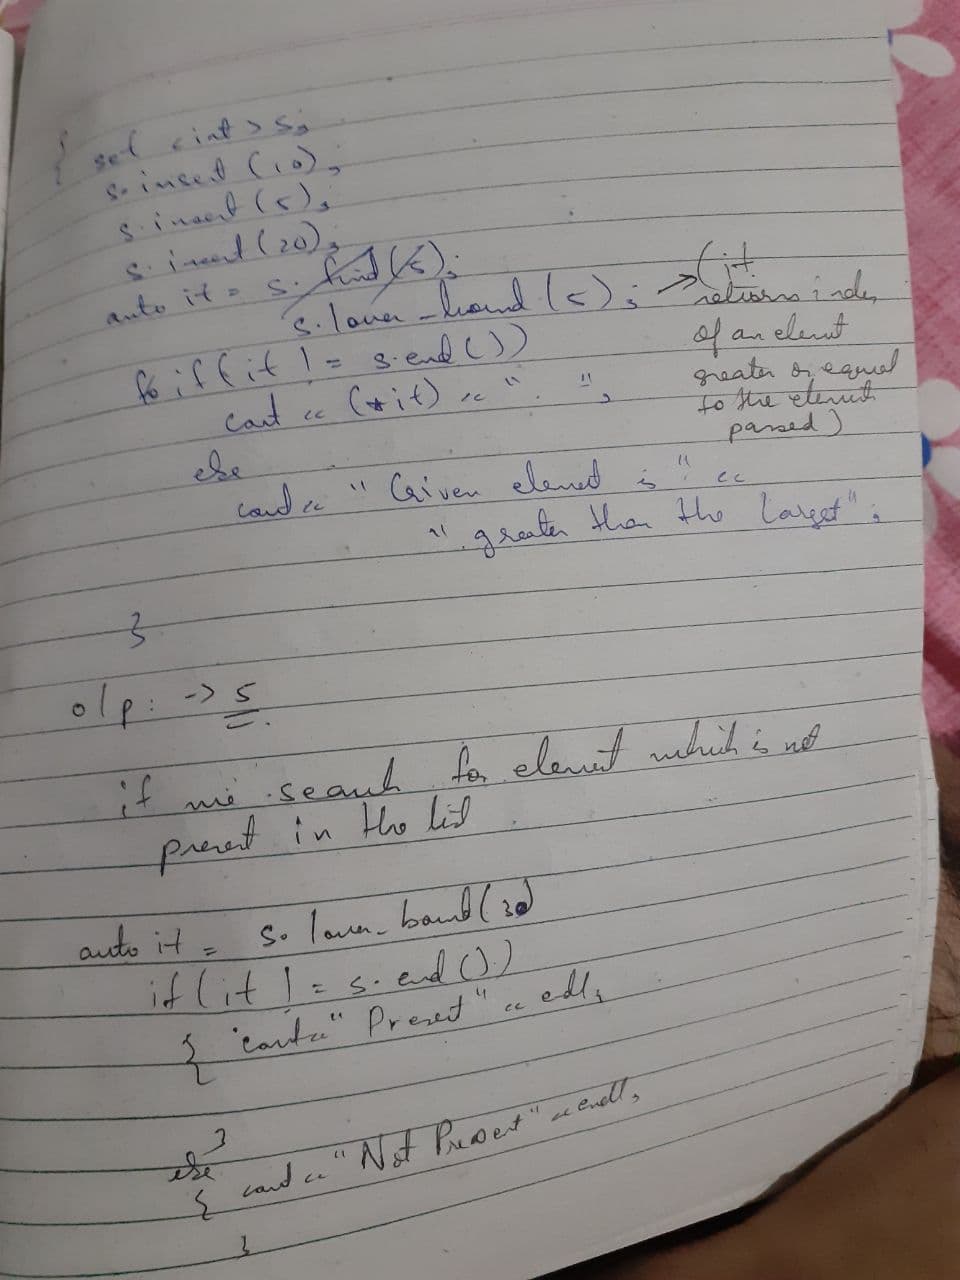 { set <int> s;
s.insert (10);
s.insert (5);
s.insert (20);
auto it = s. find(5);
s.lower_bound (5); → (it
returns index
of an element
greater or equal
to the element
passed)
if (it != s.end ())
cout << (*it) << " . ";
else
cout << " Given element is " <<
" greater than the largest";
}
o/p: -> 5
if we search for element which is not
present in the list
auto it = s. lower_bound (30)
if (it != s. end ())
{ cout << " Present " << endl;
}
else
{ cout << " Not Present " << endl;
}